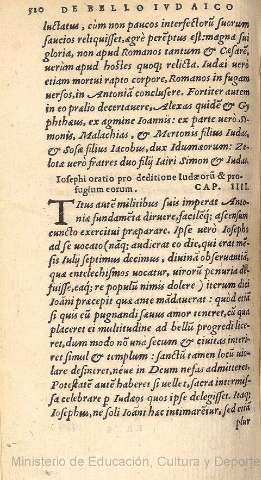 510 DE BELLO IVDAICO
luctatus, cùm non paucos interfectorũ suorum
saucios reliquisset, ægrè perẽptus est: magna sui
gloria, non apud Romanos tantum & Cæsarẽ,
verùm apud hostes quoq; relicta. Iudai verò
etiam mortui rapto corpore, Romanos in fugam
versos, in Antoniã conclusere. Fortiter autem
in eo prælio decertauere, Alexas quidẽ & Gy
phthæus, ex agmine Ioannis: ex parte verò Si-
monis, Malachias, & Mertonis filius Iudas,
& Sosæ filius Iacobus, dux Idumæorum: Ze-
lotæ verò fratres duo filij Iairi Simon & Iudas.
Iosephi oratio pro deditione Iudæorũ & pro-
fugium eorum. CAP. IIII.
TItus autẽ militibus suis imperat Anto-
niæ fundamẽta diruere, facilẽq; ascensum
cuncto exercitui præparare. Ipse verò Iosepho
ad se vocato (nãq; audierat eo die, qui erat mẽ-
sis Iulij septimus decimus, diuina obseruantiã,
quæ entelechismos vocatur, virorũ penuria de-
fuisse, eaq; re populũ nimis dolere) iterum dici
Ioãni præcepit quæ ante mãdauerat: quod etiã
si quis eũ pugnandi sæuus amor teneret, cũ qua
placeret ei multitudine ad bellũ progredi lice-
ret, dum modo nõ vna secum & ciuitas interi-
ret simul & templum: sanctũ tamen locũ uio-
lare desineret, nève in Deum nefas admitteret.
Potestatẽ autẽ haberet si vellet, sacra intermis-
sa celebrare p Iudæos quos ipse delegisset. Itaq;
Iosephus, ne soli Ioani hæc intimarẽtur, sed etiã
plur
Ministerio de Educación, Cultura y Deporte